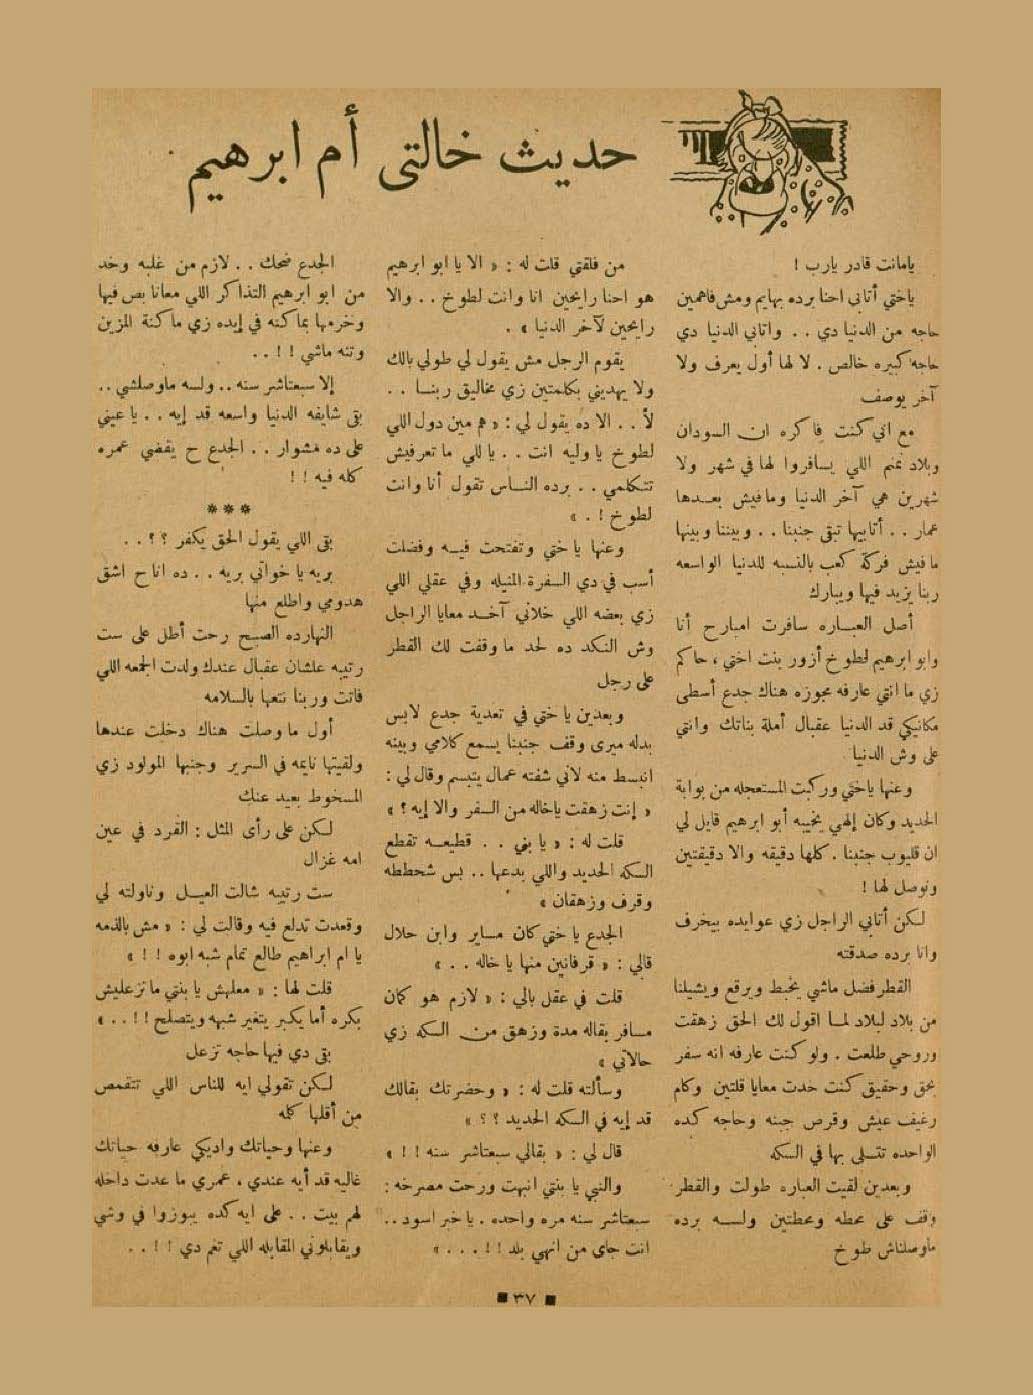 حديث خالتي أم ابرهيم
يامانت قادر يارب !
ياختي أتاني احنا برده بهايم ومش فاهمين
حاجه من الدنيا دي . . واتابي الدنيا دي
حاجه كبيره خالص . لا لها أول يعرف ولا
آخر يوصف
مع اني كنت فاكره ان السودان
وبلاد نمنم اللي يسافروا لها في شهر ولا
شهرين هي آخر الدنيا ومافيش بعدها
عمار . . أتابيها تبقى جنبنا . . وبيننا وبينها
مافيش فركة كعب بالنسبه للدنيا الواسعه
ربنا يزيد فيها ويبارك
أصل العباره سافرت امبارح أنا
وابو ابرهيم لطوخ أزور بنت اختي ، حاكم
زي ما انتي عارفه مجوزه هناك جدع أسطى
مكانيكي قد الدنيا عقبال أملة بناتك وانتي
على وش الدنيا
وعنها ياختي وركبت المستعجله من بوابة
الحديد وكان إلهي يخيبه أبو ابرهيم قايل لي
ان قليوب جنبنا . كلها دقيقه والا دقيقتين
ونوصل لها !
لكن أتابي الراجل زي عوايده بيخرف
وانا برده صدقته
القطر فضل ماشي يخبط ويرقع ويشيلنا
من بلاد لبلاد لما اقول لك الحق زهقت
وروحي طلعت . ولو كنت عارفه انه سفر
بحق وحقيق كنت خدت معايا قلتين وكام
رغيف عيش وقرص جبنه وحاجه كده
الواحده تتسلى بها في السكه
وبعدين لقيت العباره طولت والقطر
وقف على محطه ومحطتين ولسه برده
ماوصلناش طوخ
من فلقتي قلت له : « الا يا ابو ابرهيم
هو احنا رايحين انا وانت لطوخ . . والا
رايحين لآخر الدنيا » .
يقوم الرجل مش يقول لي طولي بالك
ولا يهديني بكلمتين زي مخاليق ربنا . .
لأ . . الا ده يقول لي : « هم مين دول اللي
لطوخ يا وليه انت . . يا للي ما تعرفيش
تتكلمي . . برده الناس تقول أنا وانت
لطوخ ! . »
وعنها ياختي وتفتحت فيه وفضلت
أسب في دي السفرة المنيله وفي عقلي اللي
زي بعضه اللي خلاني آخد معايا الراجل
وش النكد ده لحد ما وقفت لك القطر
على رجل
وبعدين ياختي في تعدية جدع لابس
بدله ميرى وقف جنبنا يسمع كلامي وبينه
انبسط منه لاني شفته عمال يتبسم وقال لي :
« إنت زهقت ياخاله من السفر والا إيه ؟ »
قلت له : « يا بني . . قطيعه تقطع
السكه الحديد واللي بدعها . . بس شحططه
وقرف وزهقان »
الجدع ياختي كان مساير وابن حلال
قالي : « قرفانين منها يا خاله . . »
قلت في عقل بالي : « لازم هو كان
مسافر بقاله مدة وزهق من السكه زي
حالاتي »
وسألته قلت له : « وحضرتك بقالك
قد إيه في السكه الحديد ؟ ؟ »
قال لي : « بقالي سبعتاشر سنه ! ! »
والنبي يا بنتي انبهت ورحت مصرخه :
سبعتاشر سنه مره واحده . يا خبر اسود . .
انت جاى من انهي بلد ! ! . . . »
الجدع ضحك . . لازم من غلبه وخد
من ابو ابرهيم التذاكر اللي معانا بص فيها
وخرمها بماكنه في إيده زي ماكنة المزين
وتنه ماشي ! ! . .
إلا سبعتاشر سنه . . ولسه ماوصلشي . .
بقى شايفه الدنيا واسعه قد إيه . . يا عيني
على ده مشوار . . الجدع ح يقضي عمره
كله فيه ! !
***
بقى اللي يقول الحق يكفر ؟ ؟ . .
بريه يا خواتي بريه . . ده انا ح اشق
هدومي واطلع منها
النهارده الصبح رحت أطل على ست
رتيبه علشان عقبال عندك ولدت الجمعه اللي
فاتت وربنا نتعها بالسلامه
أول ماوصلت هناك دخلت عندها
ولقيتها نايمه في السرير وجنبها المولود زي
المسخوط بعيد عنك
لكن على رأى المثل : القرد في عين
امه غزال
ست رتيبه شالت العيل وناولته لي
وقعدت تدلع فيه وقالت لي : « مش بالذمه
يا ام ابراهيم طالع تمام شبه ابوه ! ! »
قلت لها : « معلهش يا بنتي ماتزعليش
بكره أما يكبر يتغير شبهه ويتصلح ! ! . . »
بقى دي فيها حاجه تزعل
لكن تقولي ايه للناس اللي تتقمص
من أقلها كله
وعنها وحياتك واديكي عارفه حياتك
غاليه قد أيه عندي ، عمري ما عدت داخله
لهم بيت . . على ايه كده يبوزوا في وشي
ويقابلوني المقابله اللي تغم دي ! ! . .
٣٧